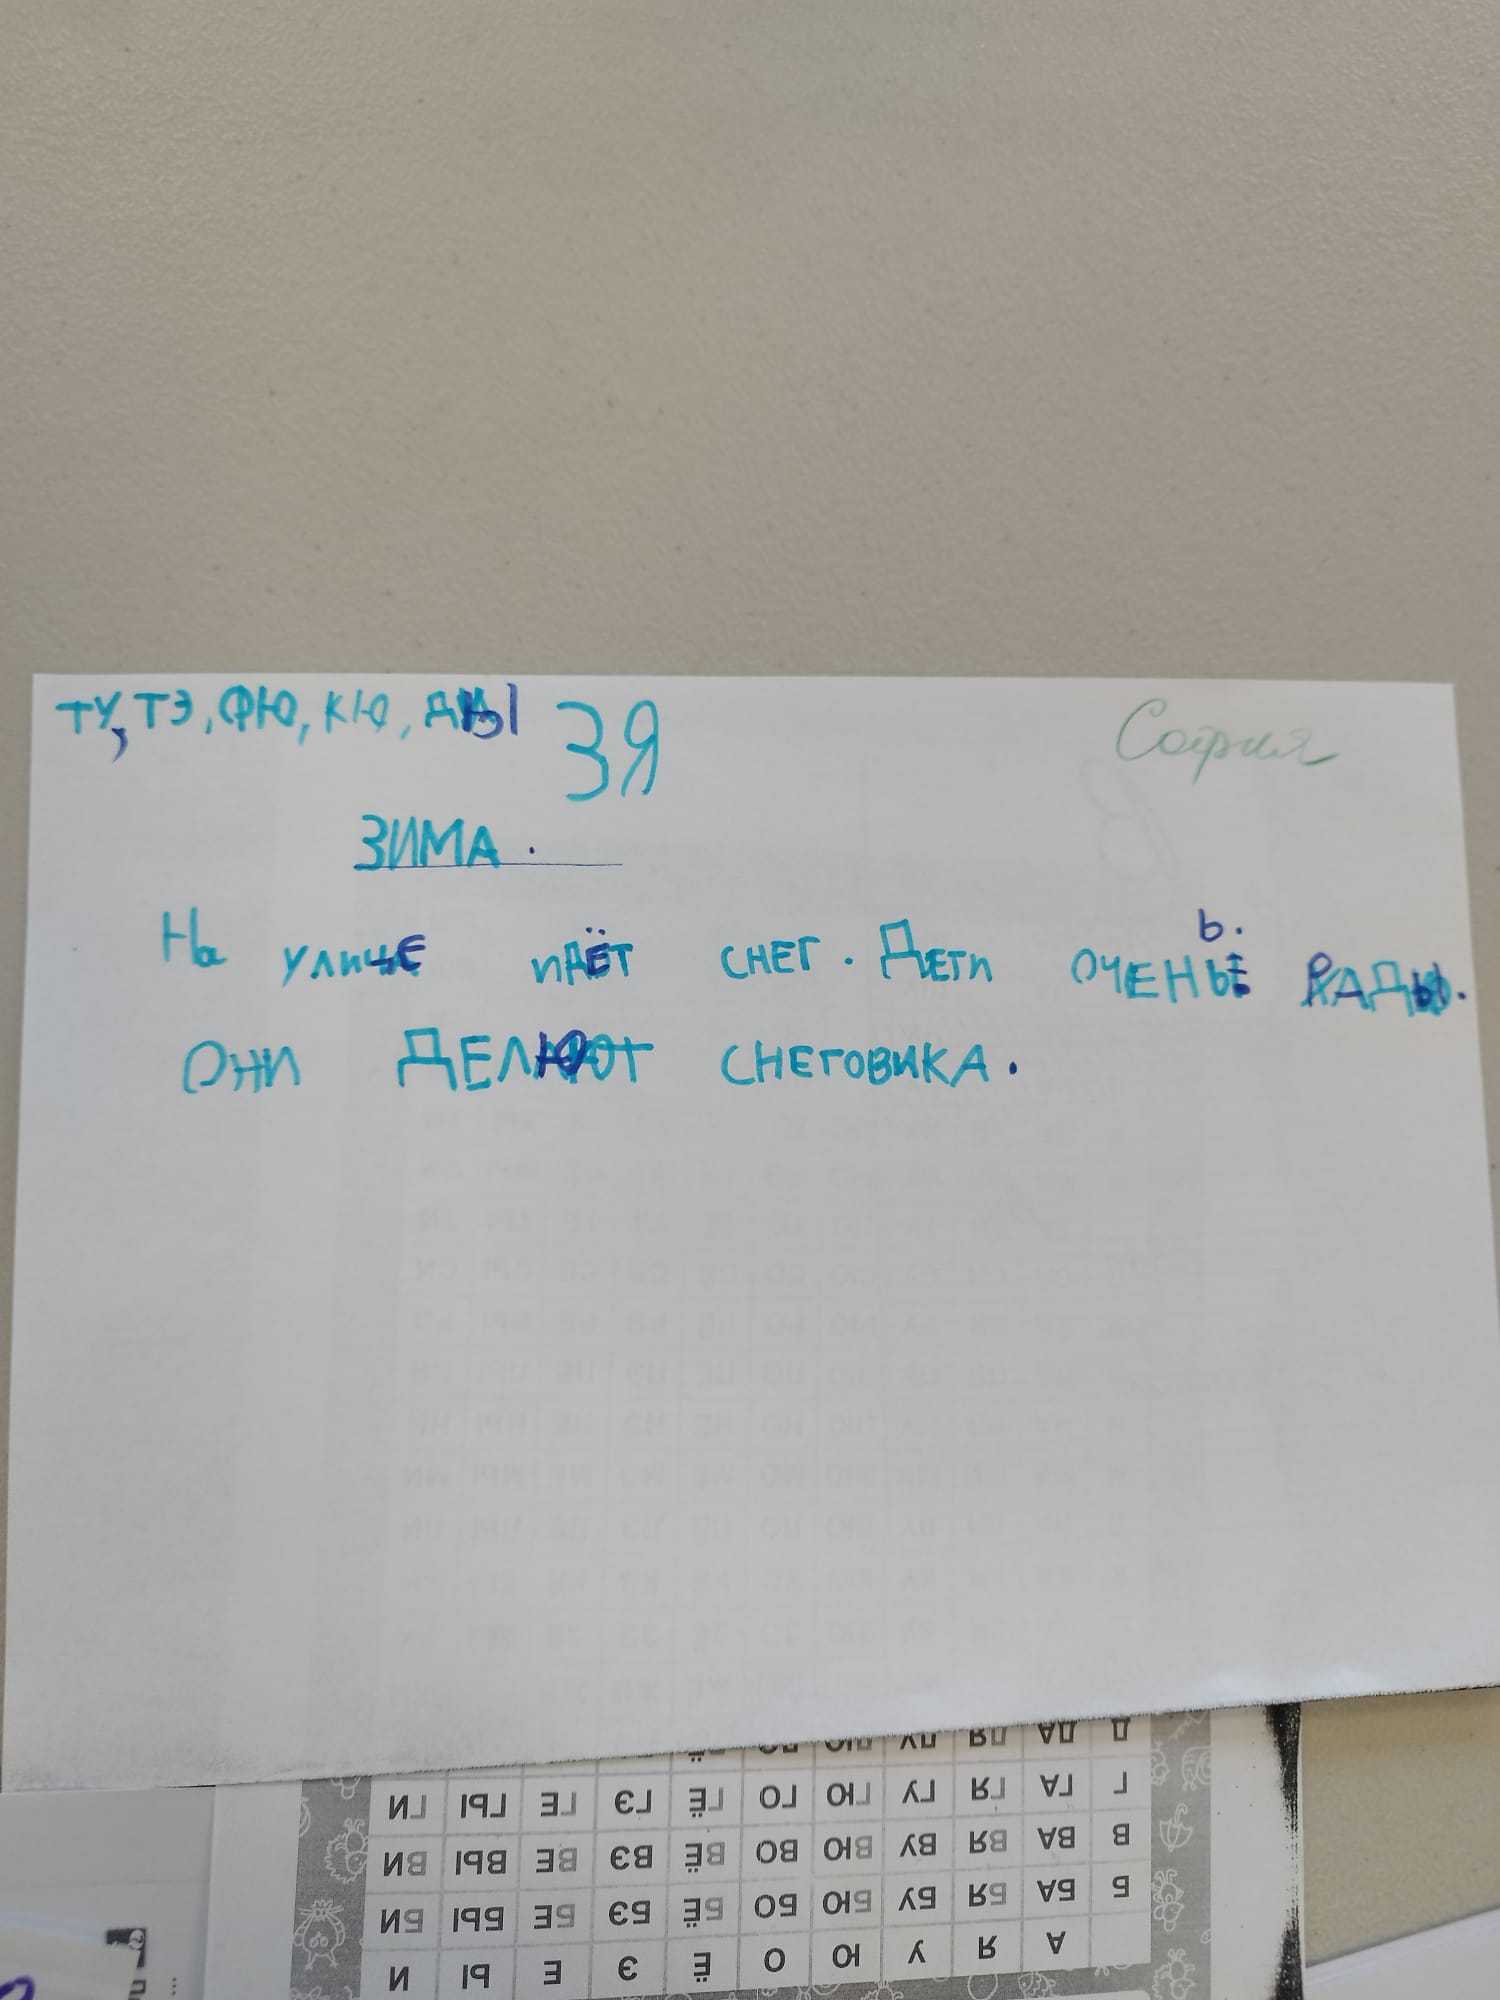 ТУ, ТЭ, ФЮ, КЮ, ДЫ
ЗЯ
София
ЗИМА.
На улице идёт снег. Дети очень рады.
ь.
Они делают снеговика.
Д ДА ДЯ ДУ ДЮ
Г ГА ГЯ ГУ ГЮ ГО ГЁ ГЭ ГЕ ГЫ ГИ
В ВА ВЯ ВУ ВЮ ВО ВЁ ВЭ ВЕ ВЫ ВИ
Б БА БЯ БУ БЮ БО БЁ БЭ БЕ БЫ БИ
А Я У Ю О Ё Э Е Ы И